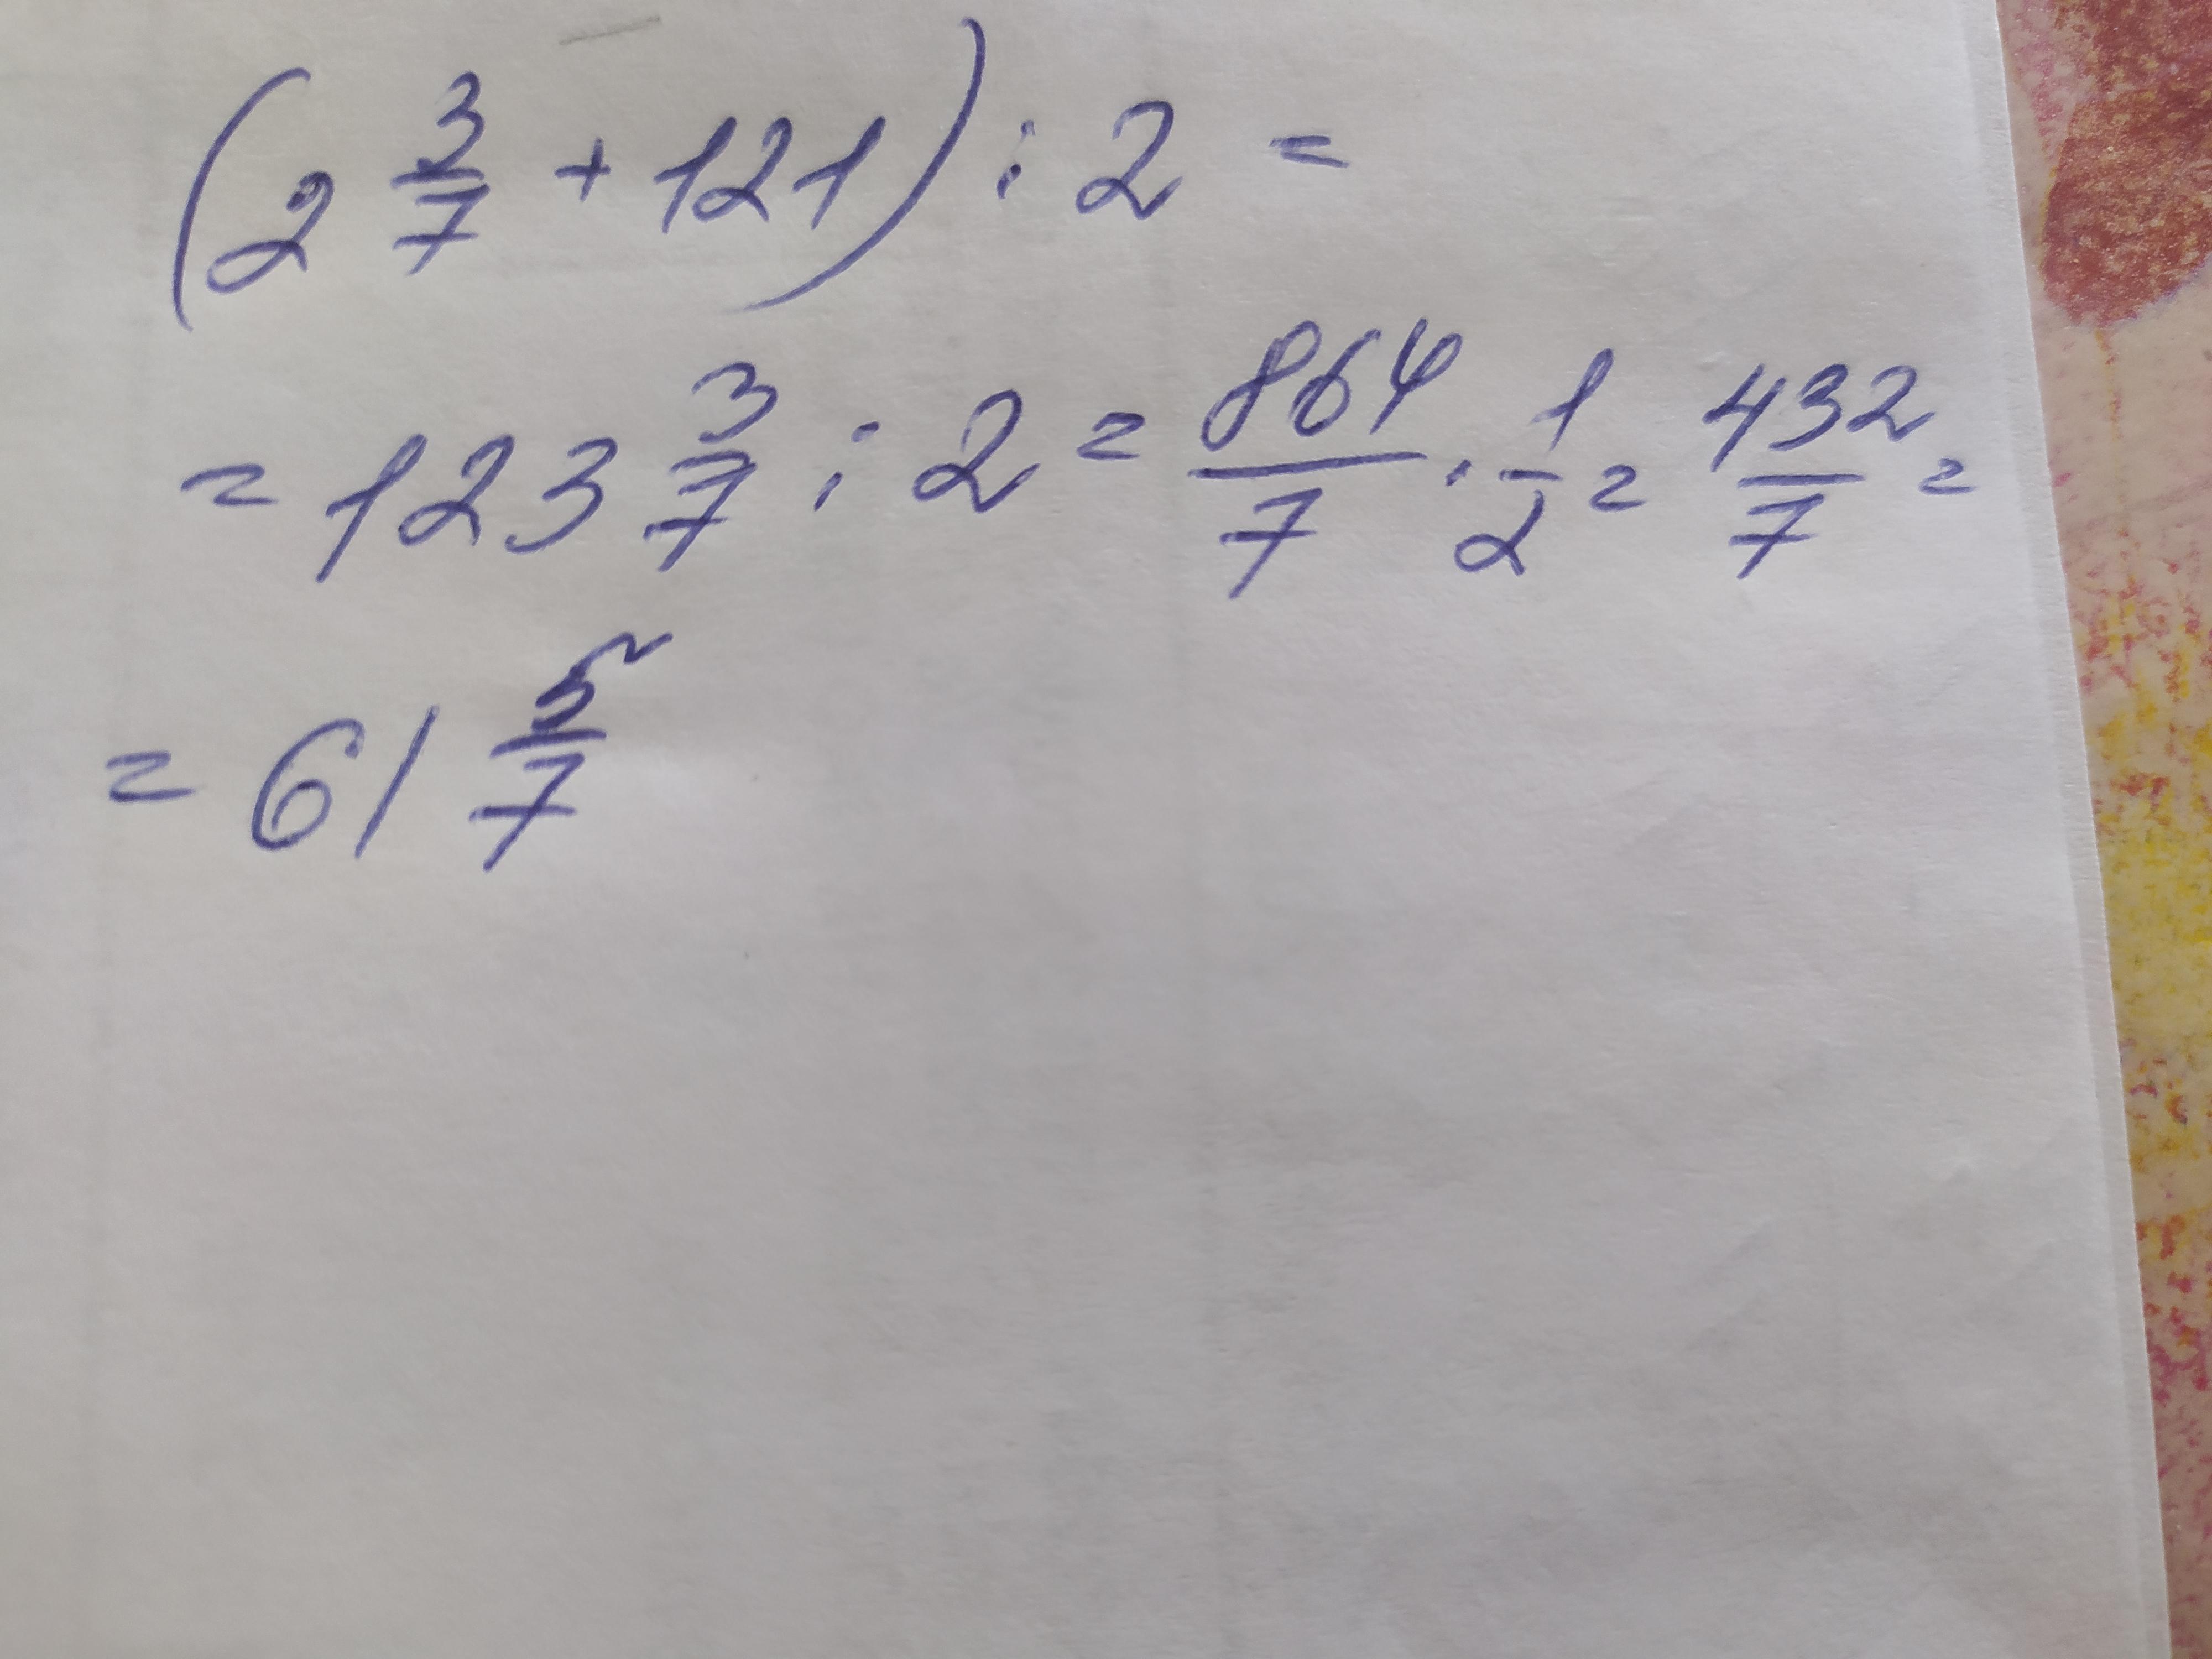 (2 3/7 + 121) : 2 =
= 123 3/7 : 2 = 864/7 · 1/2 = 432/7 =
= 61 5/7